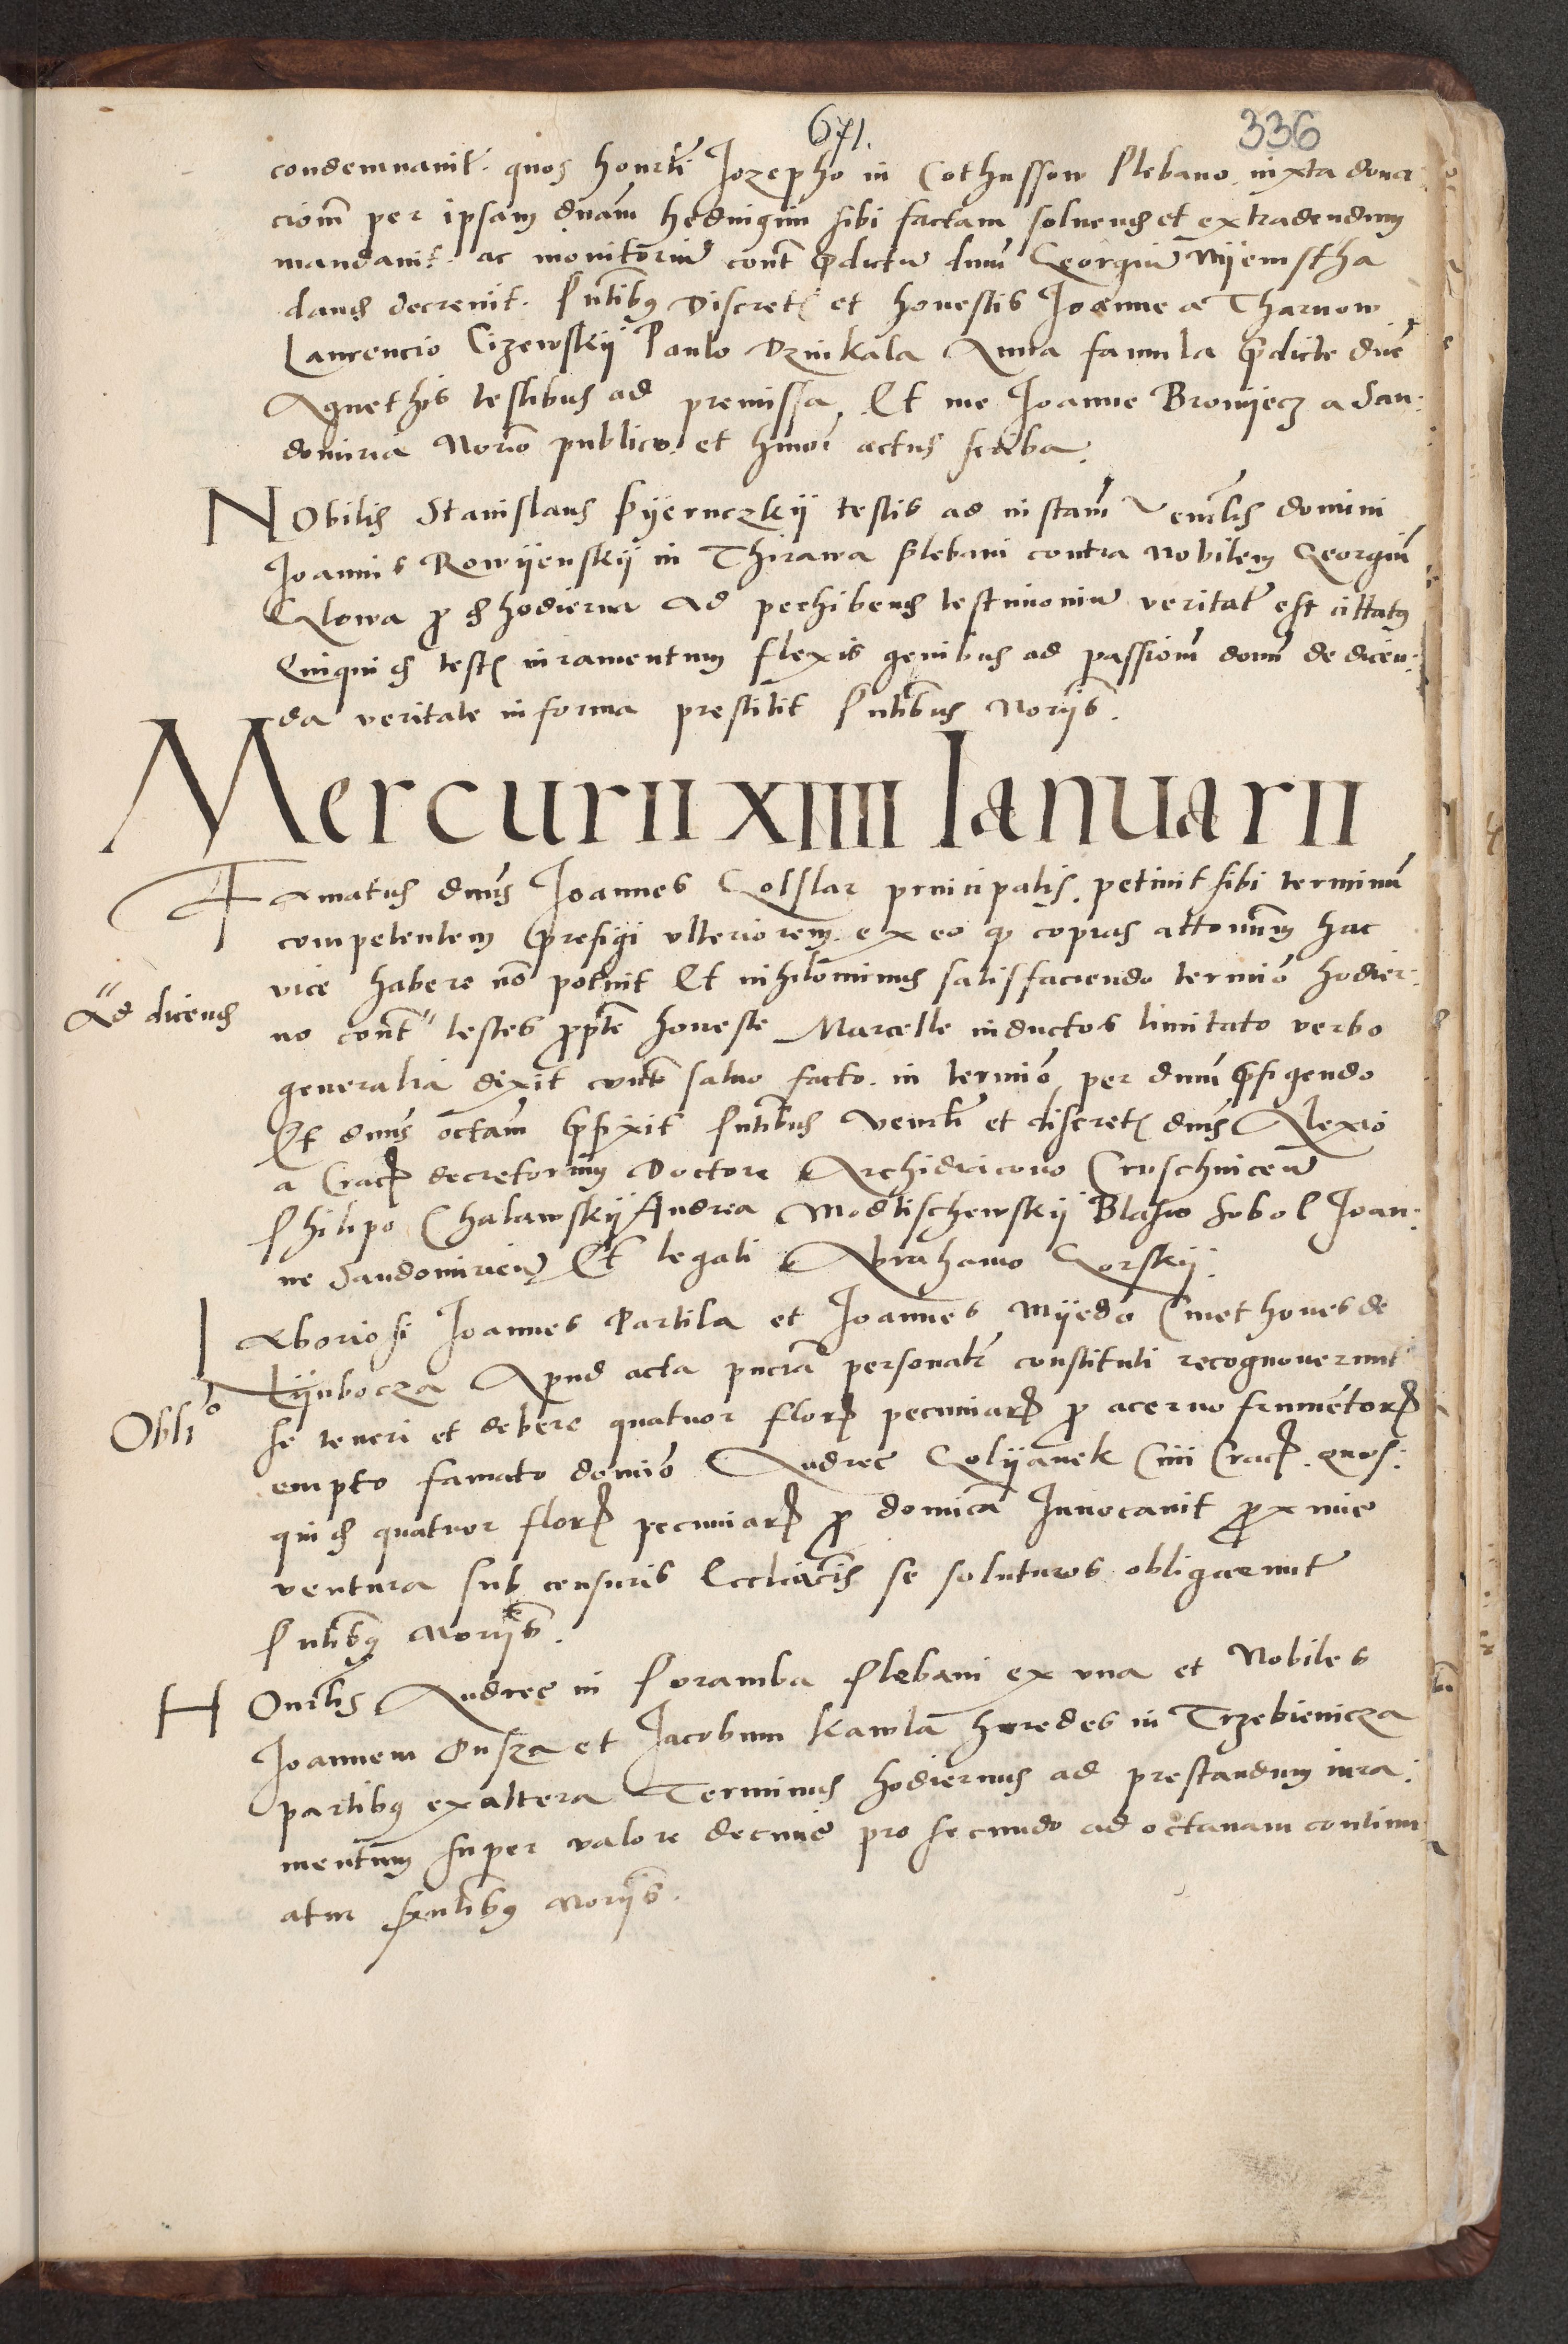 671.
336
condemnavit. quos honrli Jozepho in Cothussow Plebano iuxta dona
cionem per ipsam dnam Hedvigim sibi factam solvend et extradendum
mandavit. ac monitoriu cont pdictu dnm Georgiu Myemstha
dand decrevit. Pntibus Discretis et honestis Joanne a Tharnow
Laurencio Cizewskij Paulo Dzinkala Anna famula pdicte dne
Agnethis testibus ad premissa Et me Joanne Bronyecz a San:
domiria Norio publico et hmoi actus scriba.
NObilis Stanislaus Pyernczkij testis ad instam Venrlis domini
Joannis Rowyenskij in Thirawa Plebani contra Nobilem Georgiu
Glowa p d hodierna ad perhibend testimoniu veritati est cittatus
Quiquid testis iuramentum flexis genibus ad passionem domi de dicen:
da veritate in forma prestitit Pntibus Norijs.
Mercurii XIIII Ianuarii
FAmatus dnus Joannes Golslar principalis petivit sibi terminu
competentem prefigi ulteriorem ex eo q copias attonum hac
vice habere no potuit Et nihilominus satisfaciendo termio hodier:
Ad dicend
no cont testes ppte honeste Marcelle inductos limitato verbo
generalia dixit cont salvo facto in termio per dnum pfigendo
Et dnus octam pfixit Pntibus Venrli et discretis dnis Alexio
a Crac decretorum Doctore Archidiacono Cruschvicen
Philipo Chalawskij Andrea Modlischewskij Blasio Sobol Joan:
ne Sandomirien Et legali Abrahamo Gorskij.
LAboriosi Joannes Partila et Joannes Myedo Cmethones de
Lyubocza Apud acta pncia personalr constituti recognoverunt
Oblio
se teneri et debere quatuor flor pecuniar p acervo frumentor
empto famato domio Andree Golyanek Civi Crac. quos:
quid quatuor flor pecuniar p domica Invocavit pxime
ventura sub censuris Ecclciacis se soluturos obligarunt
Pntibus Norijs.
HOnrlis Andree in Poramba Plebani ex una et Nobiles
Joannem Dusza et Jacobum Kawla heredes in Trzebienicza
partibus ex altera Terminus hodiernus ad prestandum iura:
mentum super valore decime pro secundo ad octavam continu
atur pntibus Norijs.